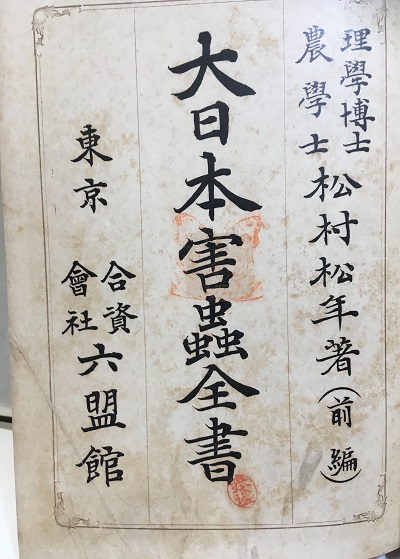 理學博士
農學士
松村松年著(前編)
大日本害蟲全書
東京
合資
會社
六盟館